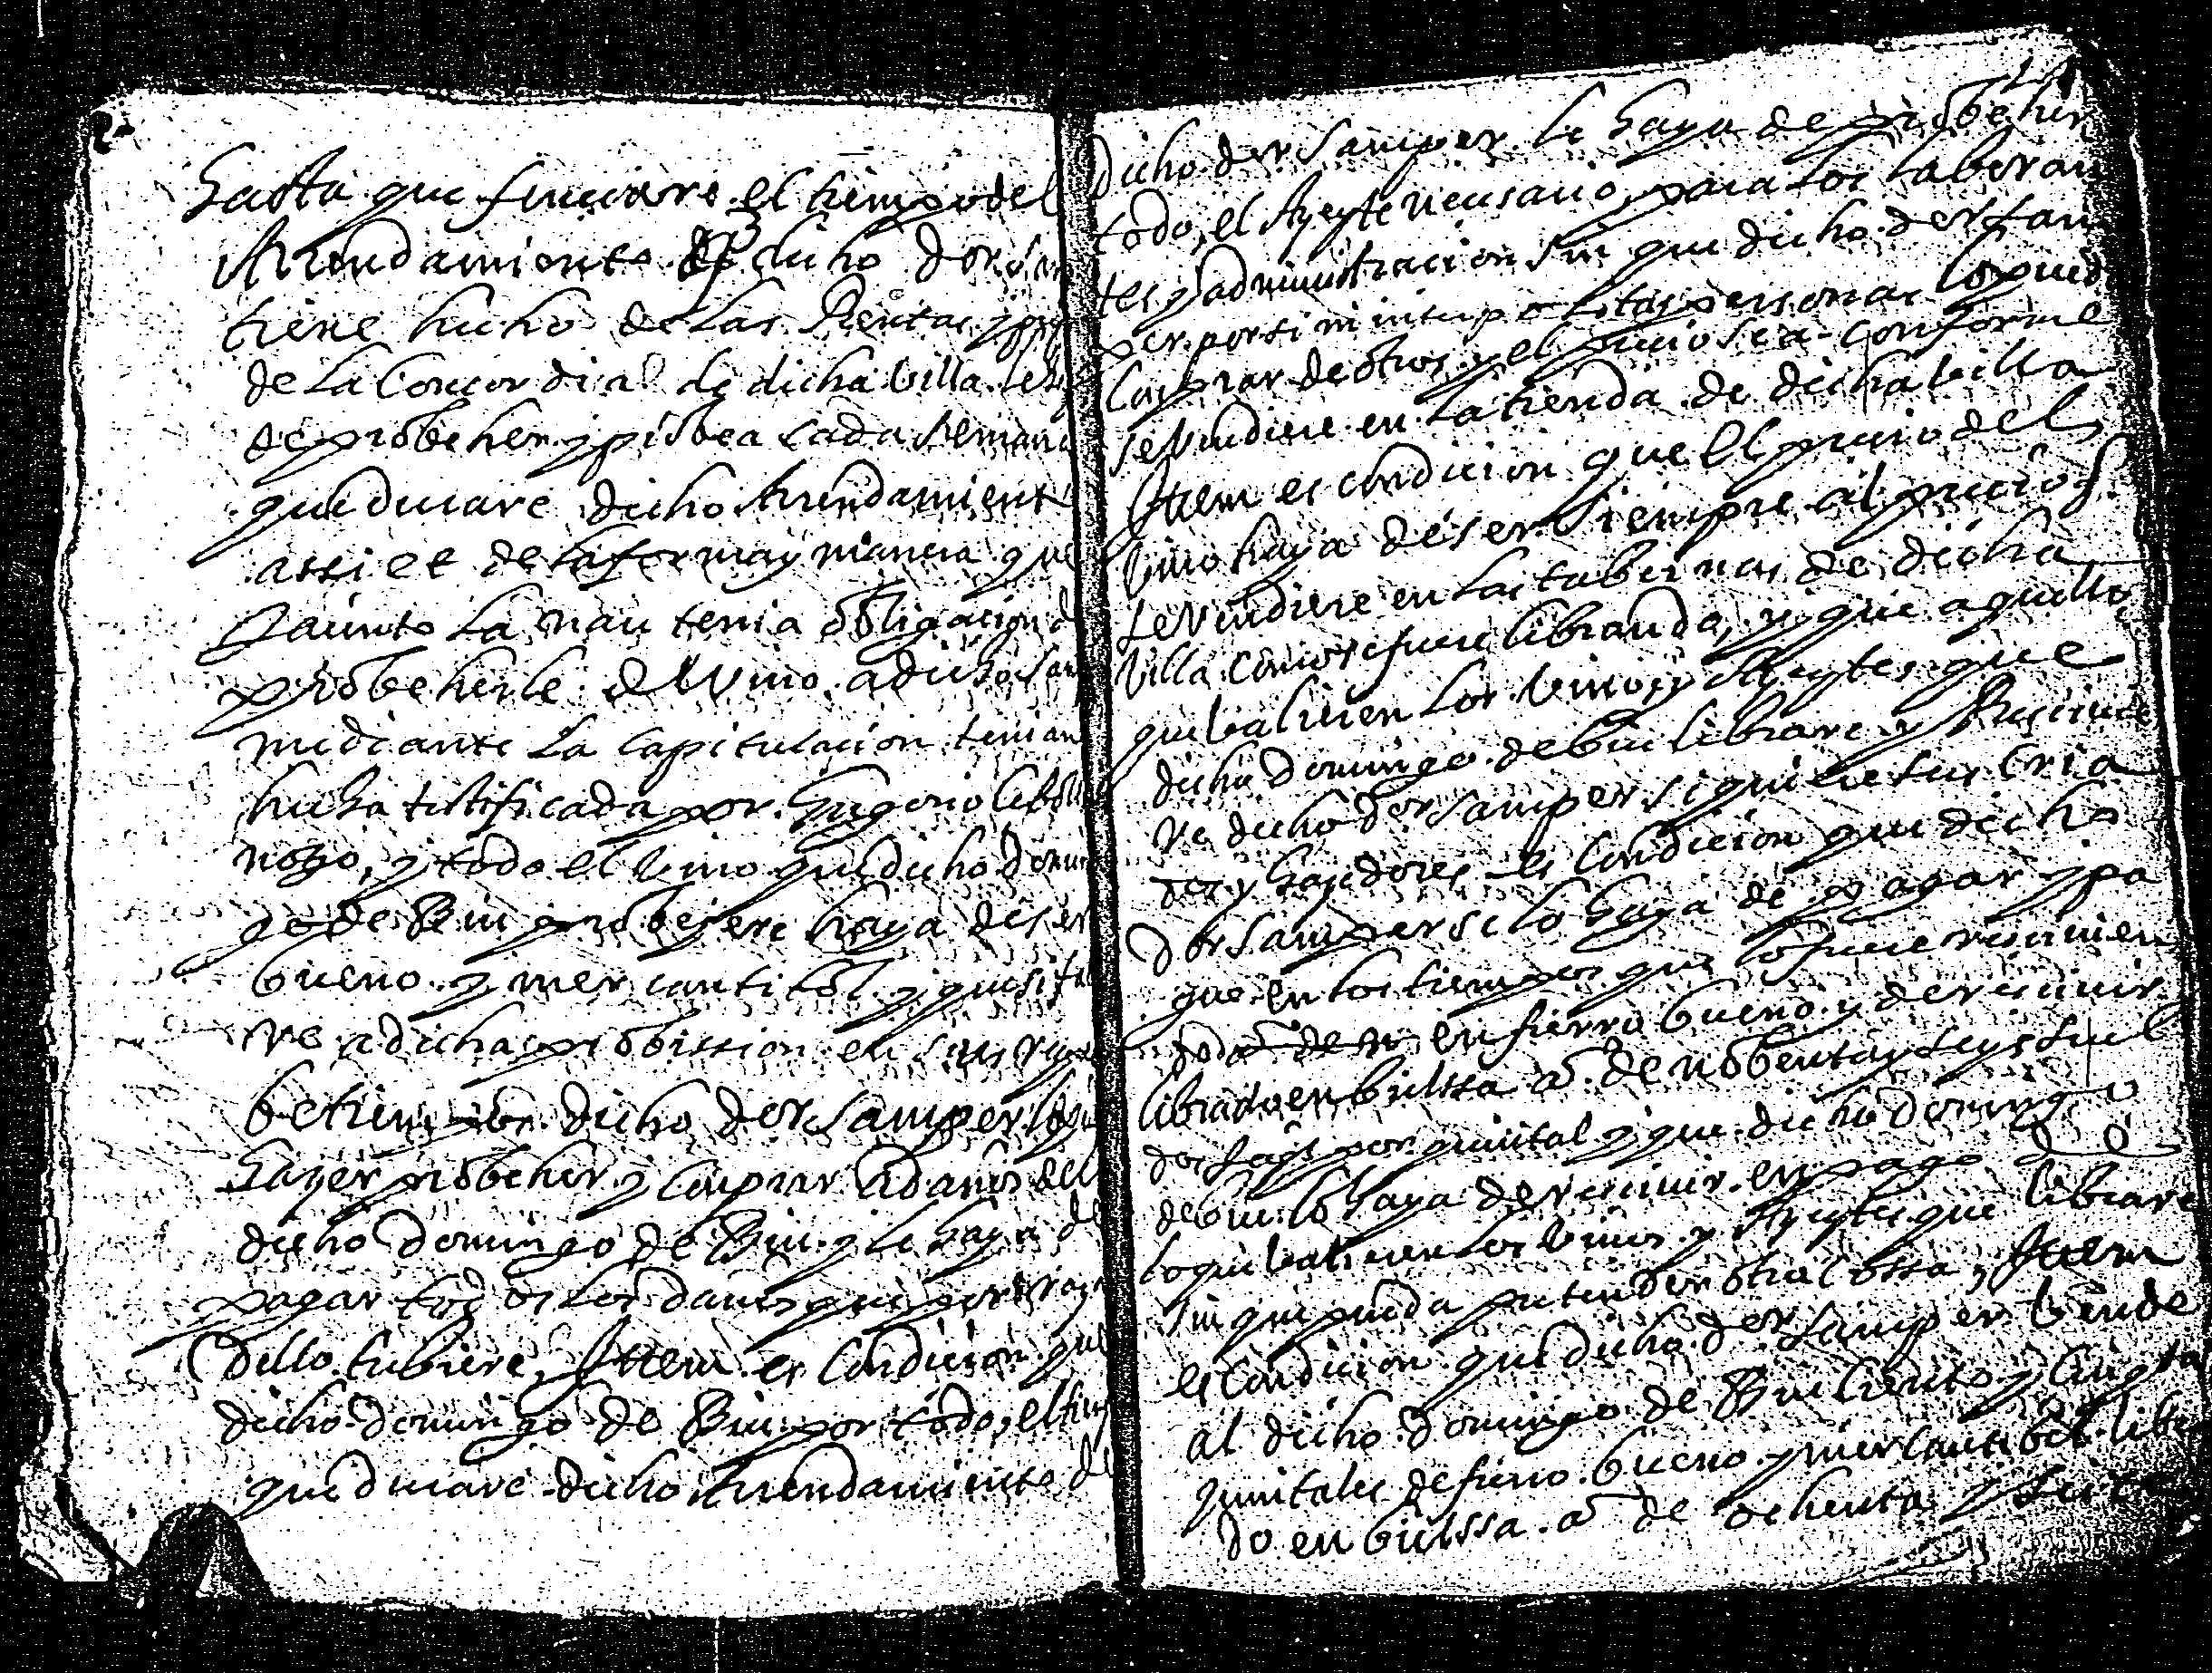 hasta que finiere el tiempo del
Arrendamiento q dicho dor Sam
tiene hecho de las Rentas y
de La Concordia de dicha Villa
de probeher y probea cada semana
que durare dicho Arrendamient
assi et de la forma y manera que
Jacinto La nau tenia obligacion d
probeherle de Vino a dicho Sam
mediante La Capitulacion tenian
hecha testificada por
noto, y todo el Vino que dicho domin
go de Biu probeyere haya de ser
bueno y mercantibol y que si fal
re a dicha probission en
betiempo dicho dor Samper
hazer probeher y comprar a daños del
dicho Domingo de Biu y le haya de
pagar todos los daños que por razo
dello tubiere, Ittem es Condicion que
dicho domingo de Biu por todo, el tiem
que durare dicho Arrendamiento d
dicho dor Samper le haya de probeher
todo, el Azeyte necesario, para los taberan
tes y administracion sin que dicho dor Sam
per por si ni interpositas personas lo pued
comprar de otros y el precio sea conforme
se bendiere en la tienda de dicha billa
Ittem es condicion que El precio del
bino haya de ser siempre al precio q
se Vendiere en las tabernas de dicha
Villa como se fuere librando, y que aquello
que balieren los Vinos y Azeytes que
dicho Domingo de Biu librare y Recivie
re dicho dor Samper si quiere sus Cria
dos y hazedores es Condicion que dicho
dor Samper se lo haya de pagar y pa
gue en los tiempos que lo fuere recivien
do en fierro bueno y de recivir
librado en buissa a de nobenta y seys suel
dos por quintal y que dicho domingo
de biu lo haya de recivir en pago de
lo que balieren los Vinos y Azeytes que librare
sin que pueda pretender otra Cossa, Ittem
es Condicion que dicho dor Samper bende
al dicho domingo de Biu Ciento y Cinq.ta
quintales de fierro bueno y mercantibol libra
do en buissa a de ochenta y